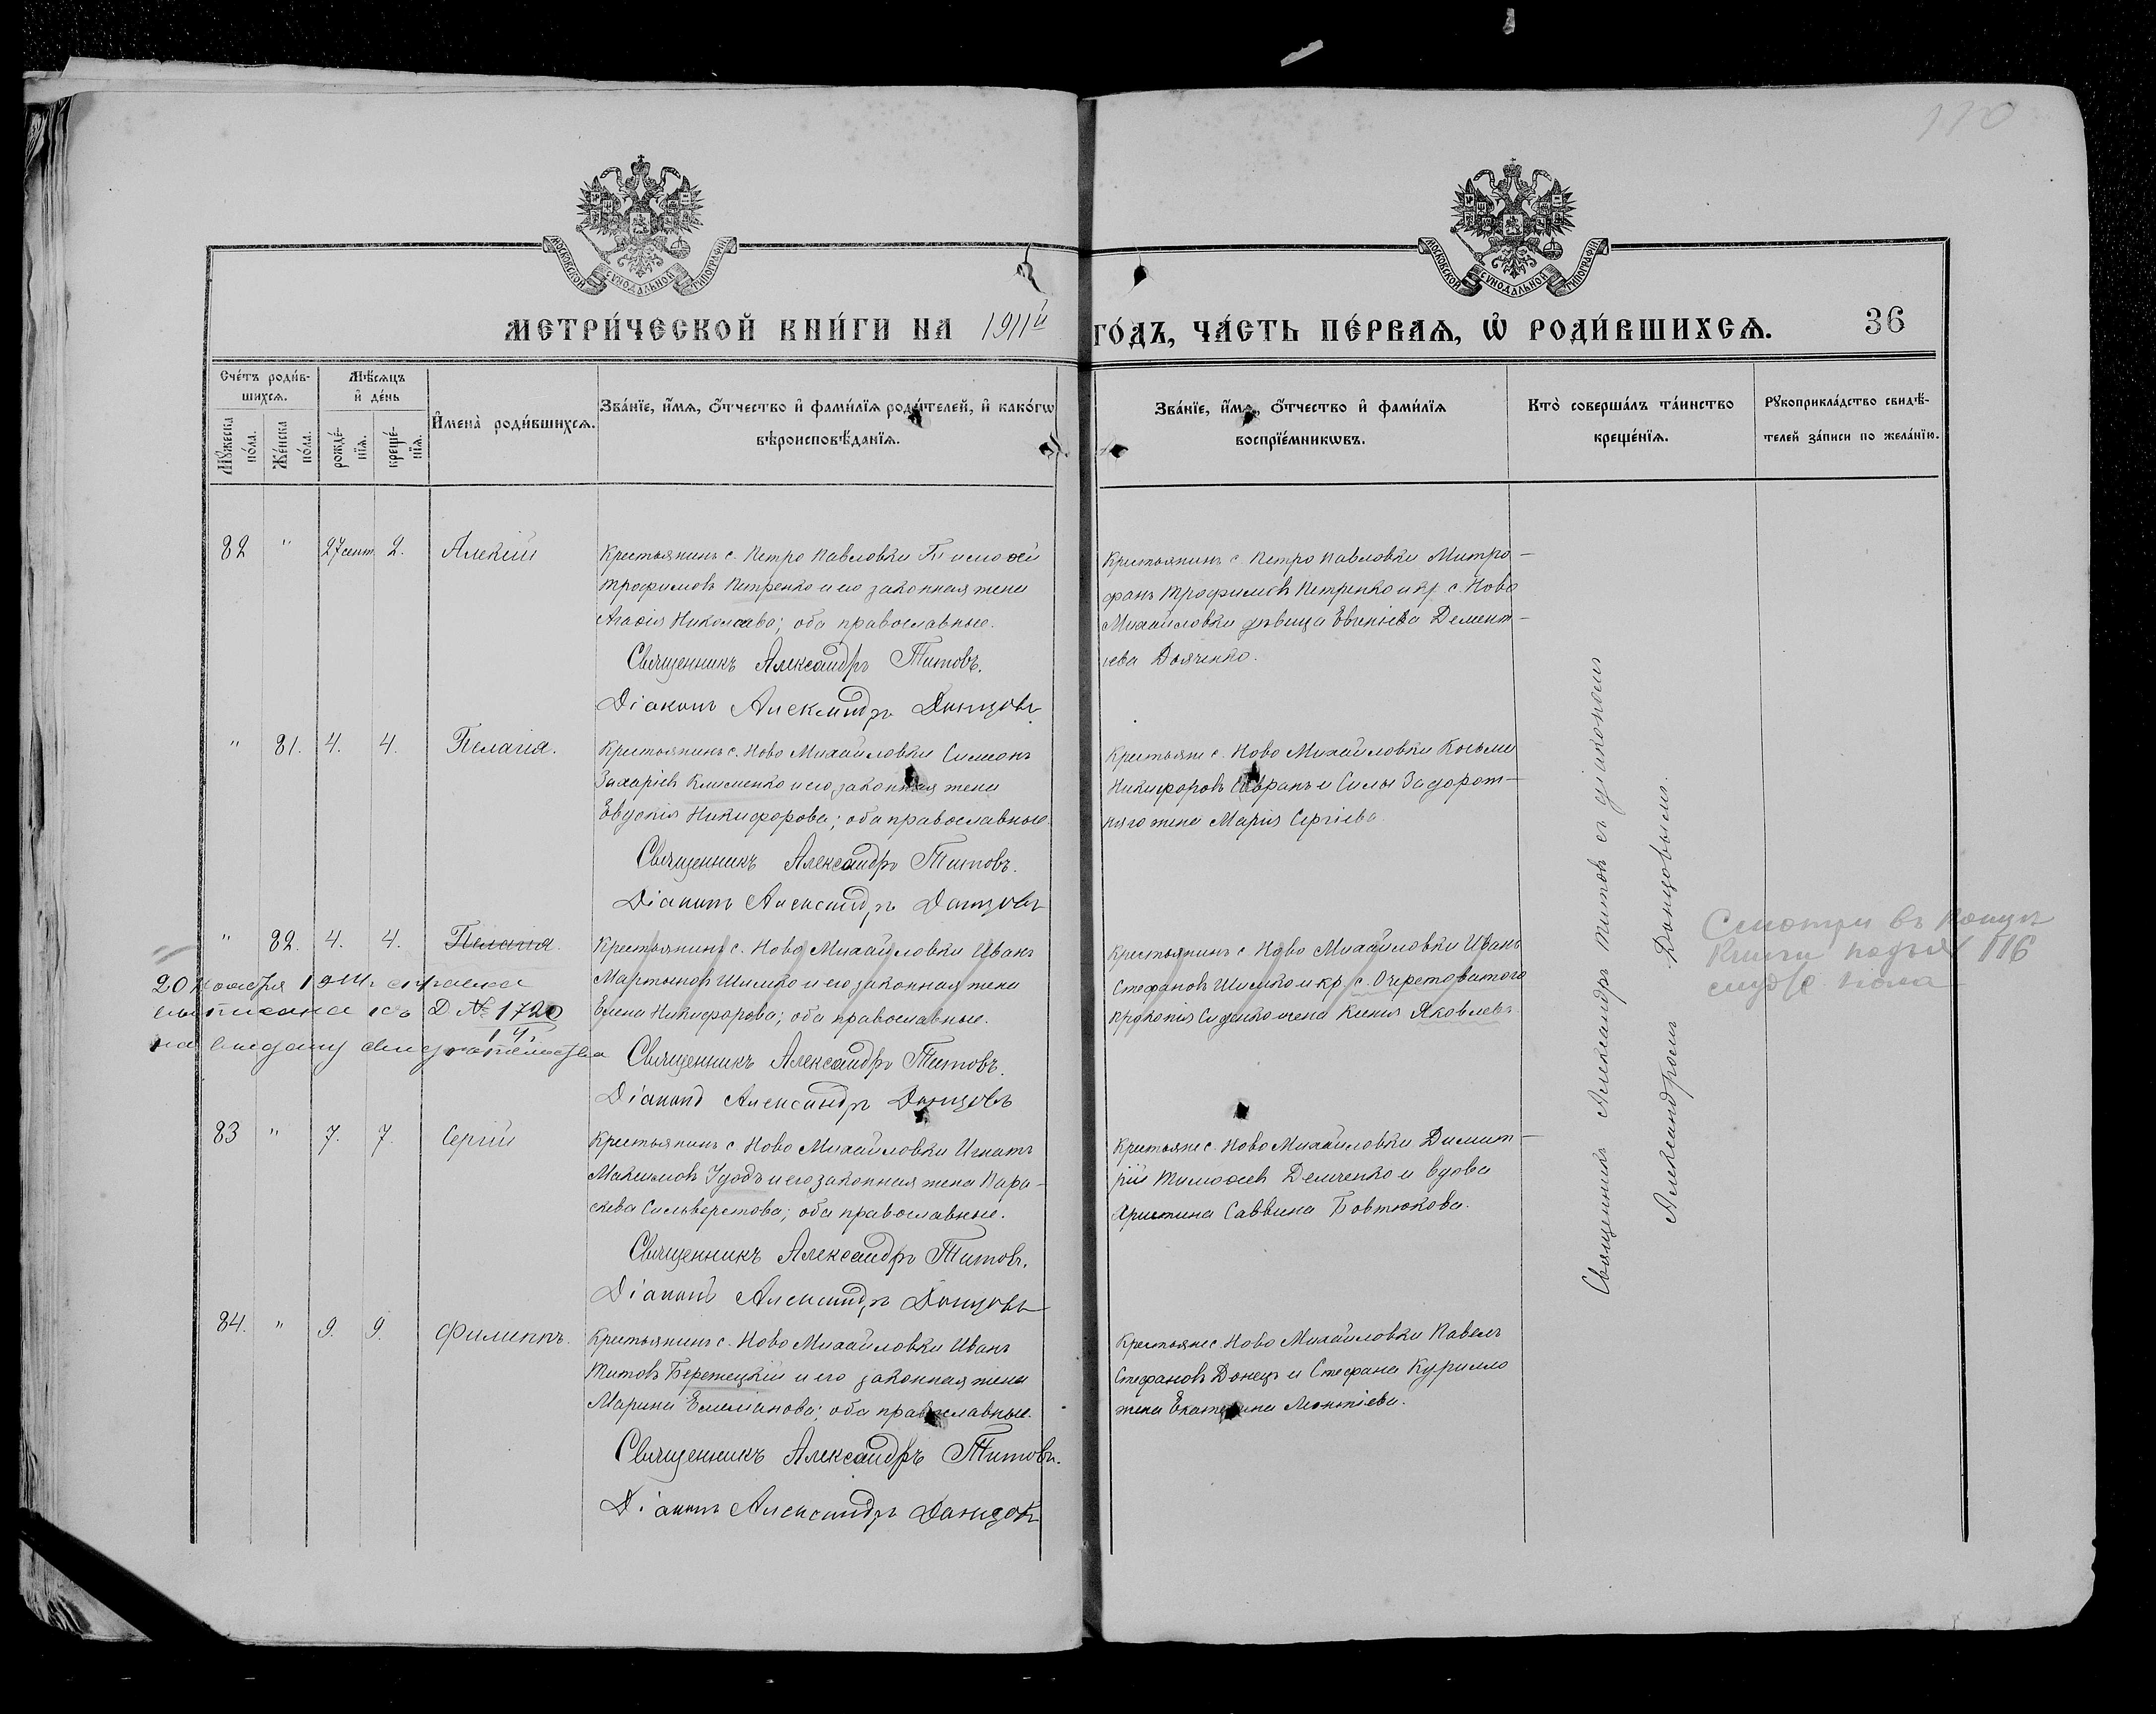 110
МОСКОВСКОЙ СѴНОДАЛЬНОЙ ТИПОГРАФІИ
МОСКОВСКОЙ СѴНОДАЛЬНОЙ ТИПОГРАФІИ
МЕТРИ́ЧЕСКОЙ КНИ́ГИ НА 1911й ГО́ДЪ, ЧА́СТЬ ПЕ́РВАѦ, Ѽ РОДИ́ВШИХСѦ. 36
Сче́тъ роди́в-
шихсѧ.
Мꙋ́жеска по́ла.
Же́нска по́ла.
Мѣ́сѧцъ
и҆ де́нь
рожде́-
нїѧ.
креще́-
нїѧ.
И҆мена̀ роди́вшихсѧ.
Зва́нїе, и҆́мѧ, ѻ҆́тчество и҆ фами́лїѧ роди́телей, и҆ како́гѡ
вѣроисповѣ́данїѧ.
Зва́нїе, и҆́мѧ, ѻ҆́тчество и҆ фами́лїѧ
воспрїе́мникѡвъ.
Кто̀ соверша́лъ та́инство
креще́нїѧ.
Рꙋкоприкла́дство свидѣ́-
телей за́писи по жела́нїю.
82 " 27 сент. 2. Алексій
Крестьянинъ с. Петро Павловки Тимоѳей
Трофимовъ Петренко и его законная жена
Агаѳія Николаева; оба православные.
Священникъ Александръ Титовъ.
Діаконъ Александръ Донцовъ
Крестьянинъ с. Петро Павловки Митро-
фанъ Трофимовъ Петренко и кр. с. Ново
Михайловки дѣвица Евгенія Демент-
іева Дяченко.
" 81. 4. 4. Пелагія.
Крестьянинъ с. Ново Михайловки Симеонъ
Захаріевъ Клименко и его законная жена
Евдокія Никифорова; оба православные.
Священникъ Александръ Титовъ.
Діаконъ Александръ Донцовъ
Крестьяне с. Ново Михайловки Косьма
Никифоровъ Савранъ и Силы Задорож-
няго жена Марія Сергіева.
" 82. 4. 4. Пелагія.
Крестьянинъ с. Ново Михайловки Иванъ
Мартыновъ Шимко и его законная жена
Елена Никифорова; оба православные.
Священникъ Александръ Титовъ.
Діаконъ Александръ Донцовъ
Крестьянинъ с. Ново Михайловки Иванъ
Стефановъ Шимко и кр. с. Очеретоватого
Прокопія жена Ксенія Яковлева.
20 ноября справка
выписана въ Д № 1720
на выдачу свидѣтельства
Смотри въ концѣ
Книги подъ № 116
мужс. пола
83 " 7. 7. Сергій
Крестьянинъ с. Ново Михайловки Игнатъ
Максимовъ Удодъ и его законная жена Пара-
скева Сильверстова; оба православные.
Священникъ Александръ Титовъ.
Діаконъ Александръ Донцовъ
Крестьяне с. Ново Михайловки Димит-
рій Тимоѳеев Демченко и вдова
Христина Саввина Бовтюкова.
84. " 9. 9. Филиппъ.
Крестьянинъ с. Ново Михайловки Иванъ
Титовъ Бережецкій и его законная жена
Марина Емеліанова; оба православные.
Священникъ Александръ Титовъ.
Діаконъ Александръ Донцовъ
Крестьяне с. Ново Михайловки Павелъ
Стефановъ Донецъ и Стефана Курилло
жена Екатерина Леонтіева.
Священникъ Александръ Титовъ съ діакономъ
Александромъ Донцовымъ.